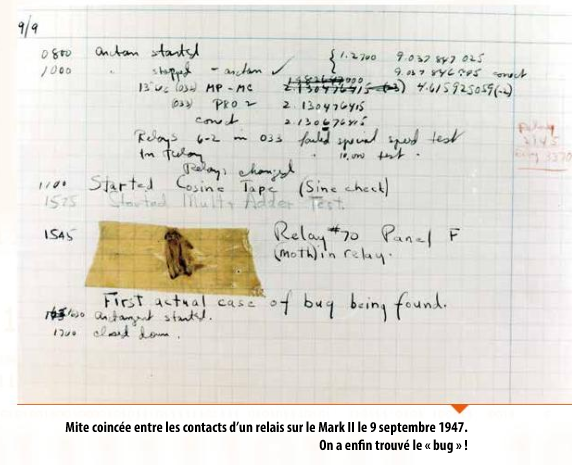 9/9
0800 Antan started
1000 " stopped - antan ✓ { 1.2700 9.037 847 025
9.037 846 995 correct
13"uc (032) MP - MC 2.130476415 (-3) 4.615925059(-2)
(033) PRO 2 2.130476415
correct 2.130676415
Relays 6-2 in 033 failed special speed test
In Relay " 10,000 test .
Relays changed
Relay
2145
Relay 3370
1100 Started Cosine Tape (Sine check)
1525 Started Mult+Adder Test.
1545 Relay #70 Panel F
(moth) in relay.
First actual case of bug being found.
1630 antangent started.
1700 closed down.
Mite coincée entre les contacts d'un relais sur le Mark II le 9 septembre 1947.
On a enfin trouvé le « bug » !